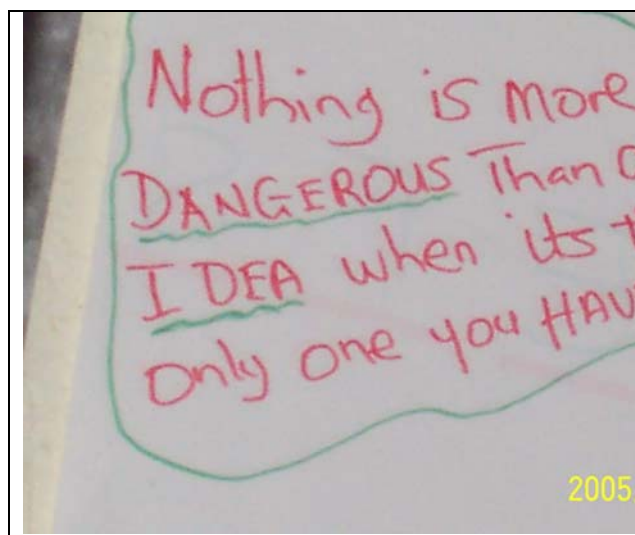 Nothing is more
DANGEROUS Than
IDEA when its
only one you HAV
2005